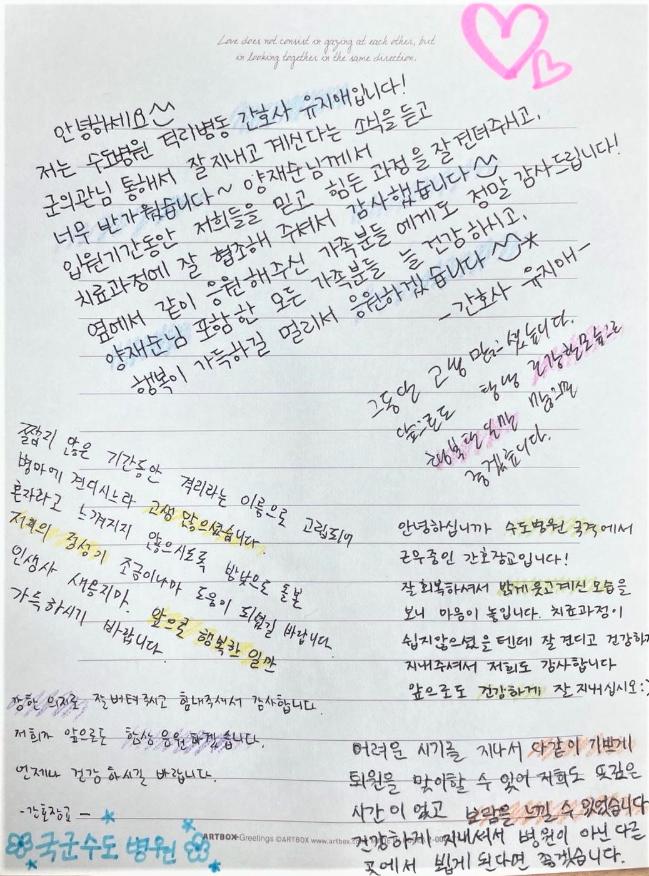 Love does not consist in gazing at each other, but
in looking together in the same direction.
안녕하세요
저는 수도병원 격리병동 간호사 유지애입니다!
군의관님 통해서 잘 지내고 계신다는 소식을 듣고
너무 반가웠습니다~ 양재순님께서
입원기간동안 저희들을 믿고 힘든 과정을 잘 견뎌주시고,
치료과정에 잘 협조해 주셔서 감사했습니다
옆에서 같이 응원해주신 가족분들 에게도 정말 감사드립니다!
양재순님 포함한 모든 가족분들 늘 건강하시고,
행복이 가득하길 멀리서 응원하겠습니다
-간호사 유지애-
그동안 고생 많으셨습니다.
앞으로도 항상 건강한모습으로
행복한 일만
좋겠습니다.
짧지 않은 기간동안 격리라는 이름으로 고립되어
병마에 견디시느라 고생 많으셨습니다.
혼자라고 느껴지지 않으시도록 밤낮으로 돌본
저희의 정성이 조금이나마 도움이 되었길 바랍니다.
인생사 새옹지마. 앞으로 행복한 일만
가득하시기 바랍니다.
안녕하십니까 수도병원 국격에서
근무중인 간호장교입니다!
잘 회복하셔서 밝게 웃고계신 모습을
보니 마음이 놓입니다. 치료과정이
쉽지않으셨을 텐데 잘 견디고 건강하게
지내주셔서 저희도 감사합니다
앞으로도 건강하게 잘 지내십시오:)
강한 의지로 잘 버텨주시고 힘내주셔서 감사합니다.
저희가 앞으로도 항상 응원하겠습니다.
언제나 건강하시길 바랍니다.
-간호장교-
국군수도병원
어려운 시기를 지나서 다같이 기쁘게
퇴원을 맞이할 수 있어 저희도 뜻깊은
시간이 었고 보람을 느낄 수 있었습니다
건강하게 지내셔서 병원이 아닌 다른
곳에서 뵙게 된다면 좋겠습니다.
ARTBOX Greetings ©ARTBOX www.artbox